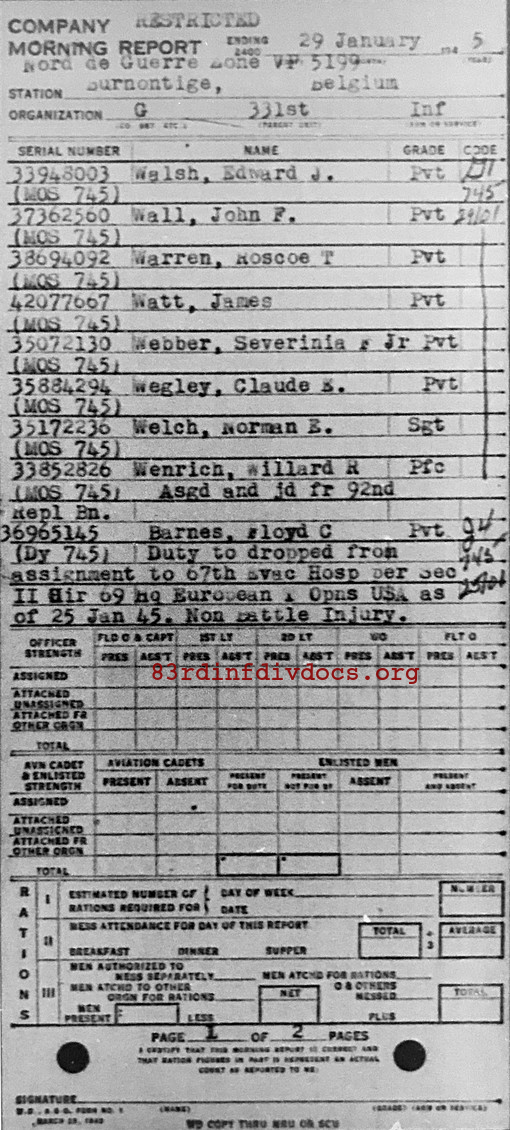 COMPANY RESTRICTED
MORNING REPORT ENDING 2400 29 January 194 5
Nord de Guerre Zone VP 5199
STATION Burnontige, Belgium
ORGANIZATION G 331st Inf
SERIAL NUMBER NAME GRADE CODE
33948003 Walsh, Edward J. Pvt
(MOS 745) 745
37362560 Wall, John F. Pvt 29/01
(MOS 745)
38694092 Warren, Roscoe T Pvt
(MOS 745)
42077667 Watt, James Pvt
(MOS 745)
35072130 Webber, Severinia F Jr Pvt
(MOS 745)
35884294 Wegley, Claude E. Pvt
(MOS 745)
35172236 Welch, Norman E. Sgt
(MOS 745)
33852826 Wenrich, Willard R Pfc
(MOS 745) Asgd and jd fr 92nd
Repl Bn.
36965145 Barnes, Floyd C Pvt
(Dy 745) Duty to dropped from 745
assignment to 67th Evac Hosp per Sec
II Cir 69 Hq European T Opns USA as
of 25 Jan 45. Non Battle Injury.
OFFICER STRENGTH FLD O & CAPT 1ST LT 2D LT WO FLT O
PRES ABS'T PRES ABS'T PRES ABS'T PRES ABS'T PRES ABS'T
ASSIGNED
83rdinfdivdocs.org
ATTACHED UNASSIGNED
ATTACHED FR OTHER ORGN
TOTAL
AVN CADET & ENLISTED STRENGTH AVIATION CADETS ENLISTED MEN
PRESENT ABSENT PRESENT FOR DUTY PRESENT NOT FOR DY ABSENT PRESENT AND ABSENT
ASSIGNED
ATTACHED UNASSIGNED
ATTACHED FR OTHER ORGN
TOTAL
RATIONS
I ESTIMATED NUMBER OF RATIONS REQUIRED FOR DAY OF WEEK DATE NUMBER
II MESS ATTENDANCE FOR DAY OF THIS REPORT TOTAL ÷ 3 AVERAGE
BREAKFAST DINNER SUPPER
III MEN AUTHORIZED TO MESS SEPARATELY MEN ATCHD FOR RATIONS
MEN ATCHD TO OTHER ORGN FOR RATIONS NET O & OTHERS MESSED TOTAL
MEN PRESENT LESS PLUS
PAGE 1 OF 2 PAGES
I CERTIFY THAT THIS MORNING REPORT IS CORRECT AND
THAT RATION FIGURES IN PART III REPRESENT AN ACTUAL
COUNT AS REPORTED TO ME:
SIGNATURE
W.D., A.G.O. FORM NO. 1 (NAME) (GRADE) (ARM OR SERVICE)
MARCH 25, 1943
WD COPY THRU MRU OR SCU